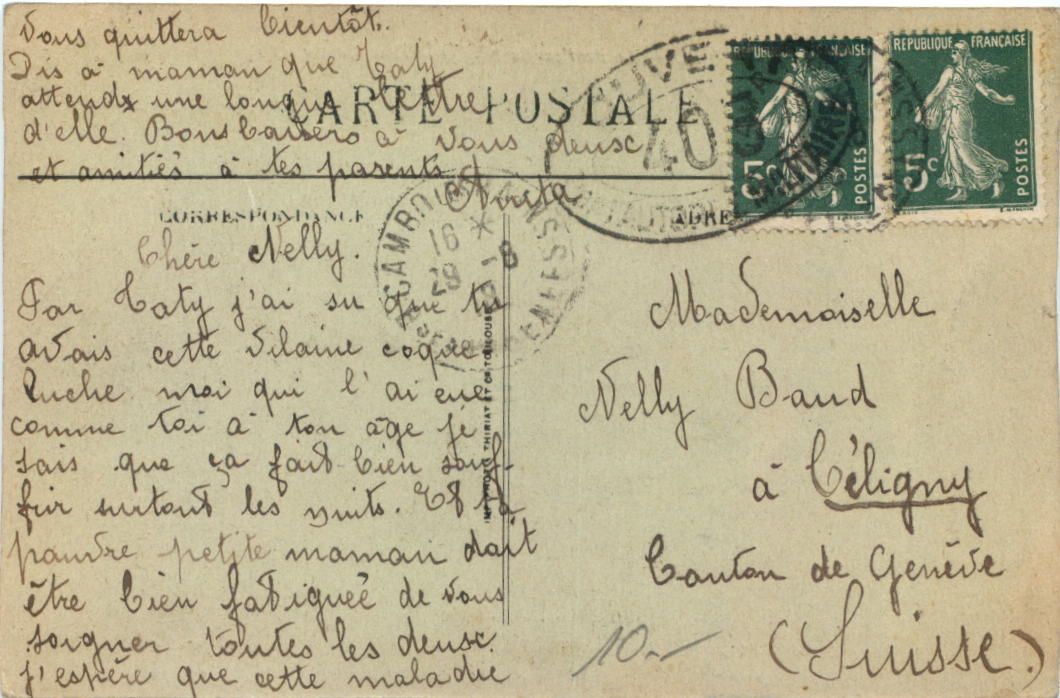 Vous quittera bientôt.
Dis à maman que Taty
attend une longue lettre
d'elle. Bons baisers à vous deux
et amitiés à tes parents
CARTE POSTALE
CORRESPONDANCE
Chère Nelly.
Par Taty j'ai su que tu
avais cette vilaine coque
luche moi qui l'ai eue
comme toi à ton âge je
sais que ça fait bien souf-
frir surtout les nuits. Et ta
pauvre petite maman doit
être bien fatiguée de vous
soigner toutes les deux
j'espère que cette maladie
REPUBLIQUE FRANÇAISE
5c
POSTES
REPUBLIQUE FRANÇAISE
5c
POSTES
Mademoiselle
Nelly Baud
à Céligny
Canton de Genève
(Suisse.)
10.-